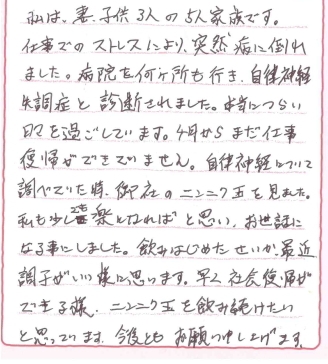 私は、妻、子供3人の5人家族です。
仕事でのストレスにより、突然病に倒れ
ました。病院を何ヶ所も行き、自律神経
失調症と診断されました。本当につらい
日々を過ごしています。4月からまだ仕事
復帰ができていません。自律神経について
調べていた時、御社のニンニク玉を見ました。
私も少し楽となればと思い、お世話に
なる事にしました。飲みはじめたせいか、最近
調子がいい様に思います。早く社会復帰が
できる様、ニンニク玉を飲み続けたい
と思っています。今後とも お願い申し上げます。